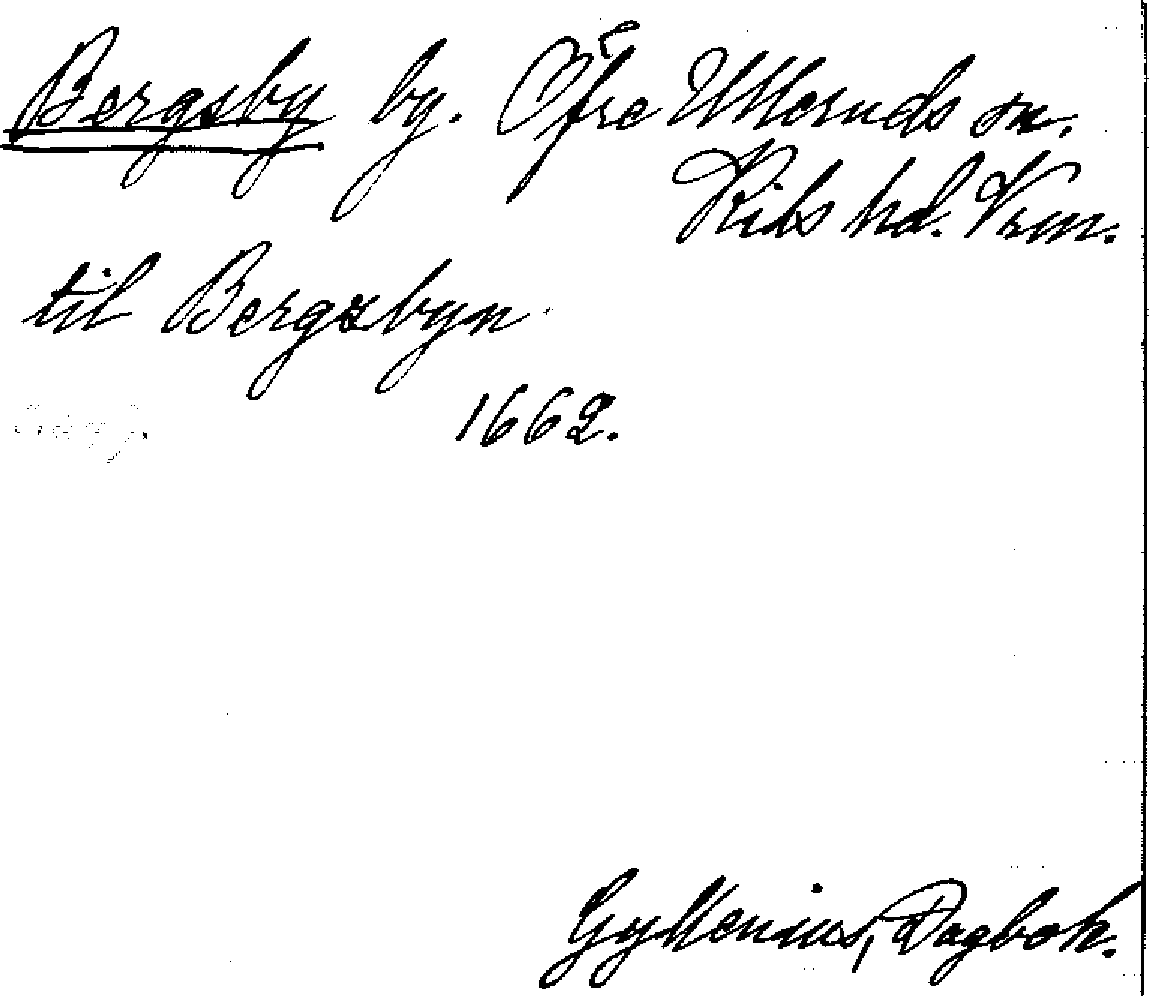 Bergsby by. Öfre Ulleruds sn.
Kils hd. Vrm.
til Bergzbyn
1662.
Gyllenius, Dagbok.